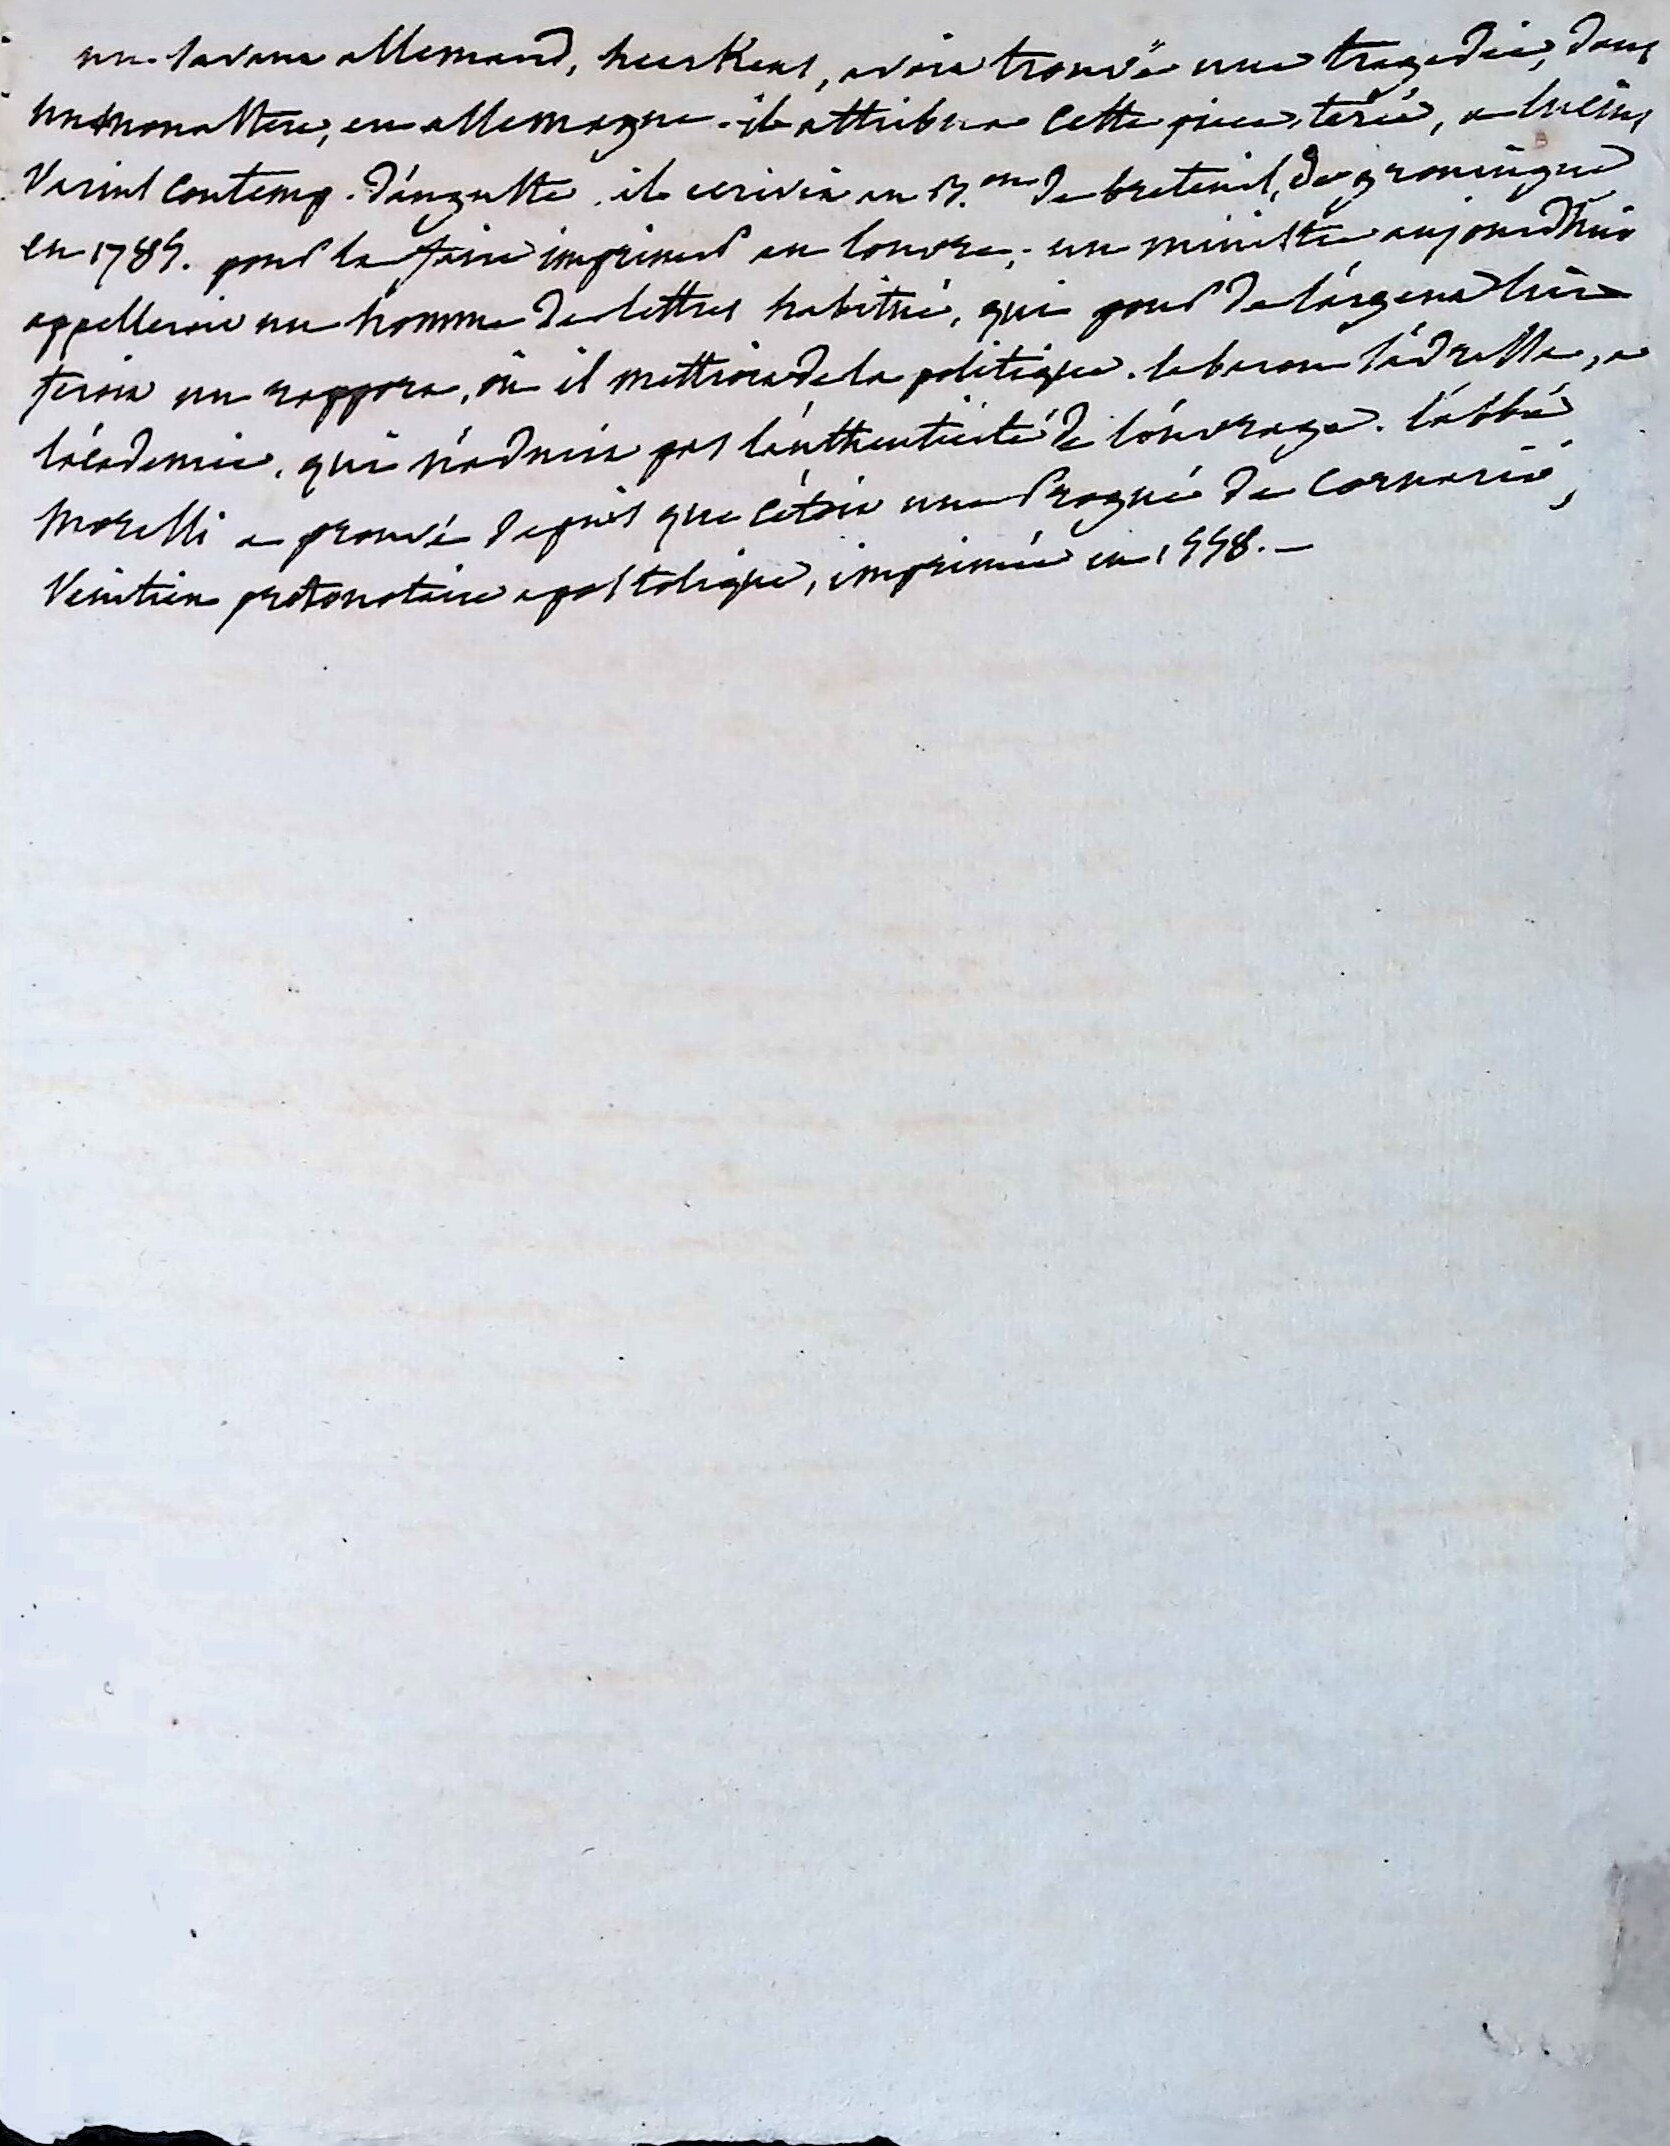 un savant allemand, heerkens, avoit trouvé une tragedie, dans
un monastere, en allemagne. il attribua cette piece, terée, a lucius
Varius contemp. d'auguste. il ecrivit au B.on de breteuil, de groningue
en 1785. pour la faire imprimer au louvre; un ministre aujourdhui
appelleroit un homme de lettres habitué, qui pour de l'argent lui
feroit un rapport, où il mettroit de la politique. le baron l'adressa, a
l'academie, qui n'admit pas l'authenticité de l'ouvrage. l'abbé
Morelli a prouvé depuis que c'étoit une Progné de Cornario,
Venitien protonotaire apostolique, imprimée en 1558. —